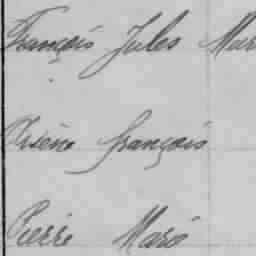 François Jules Mar
Arsène François
Pierre Marc